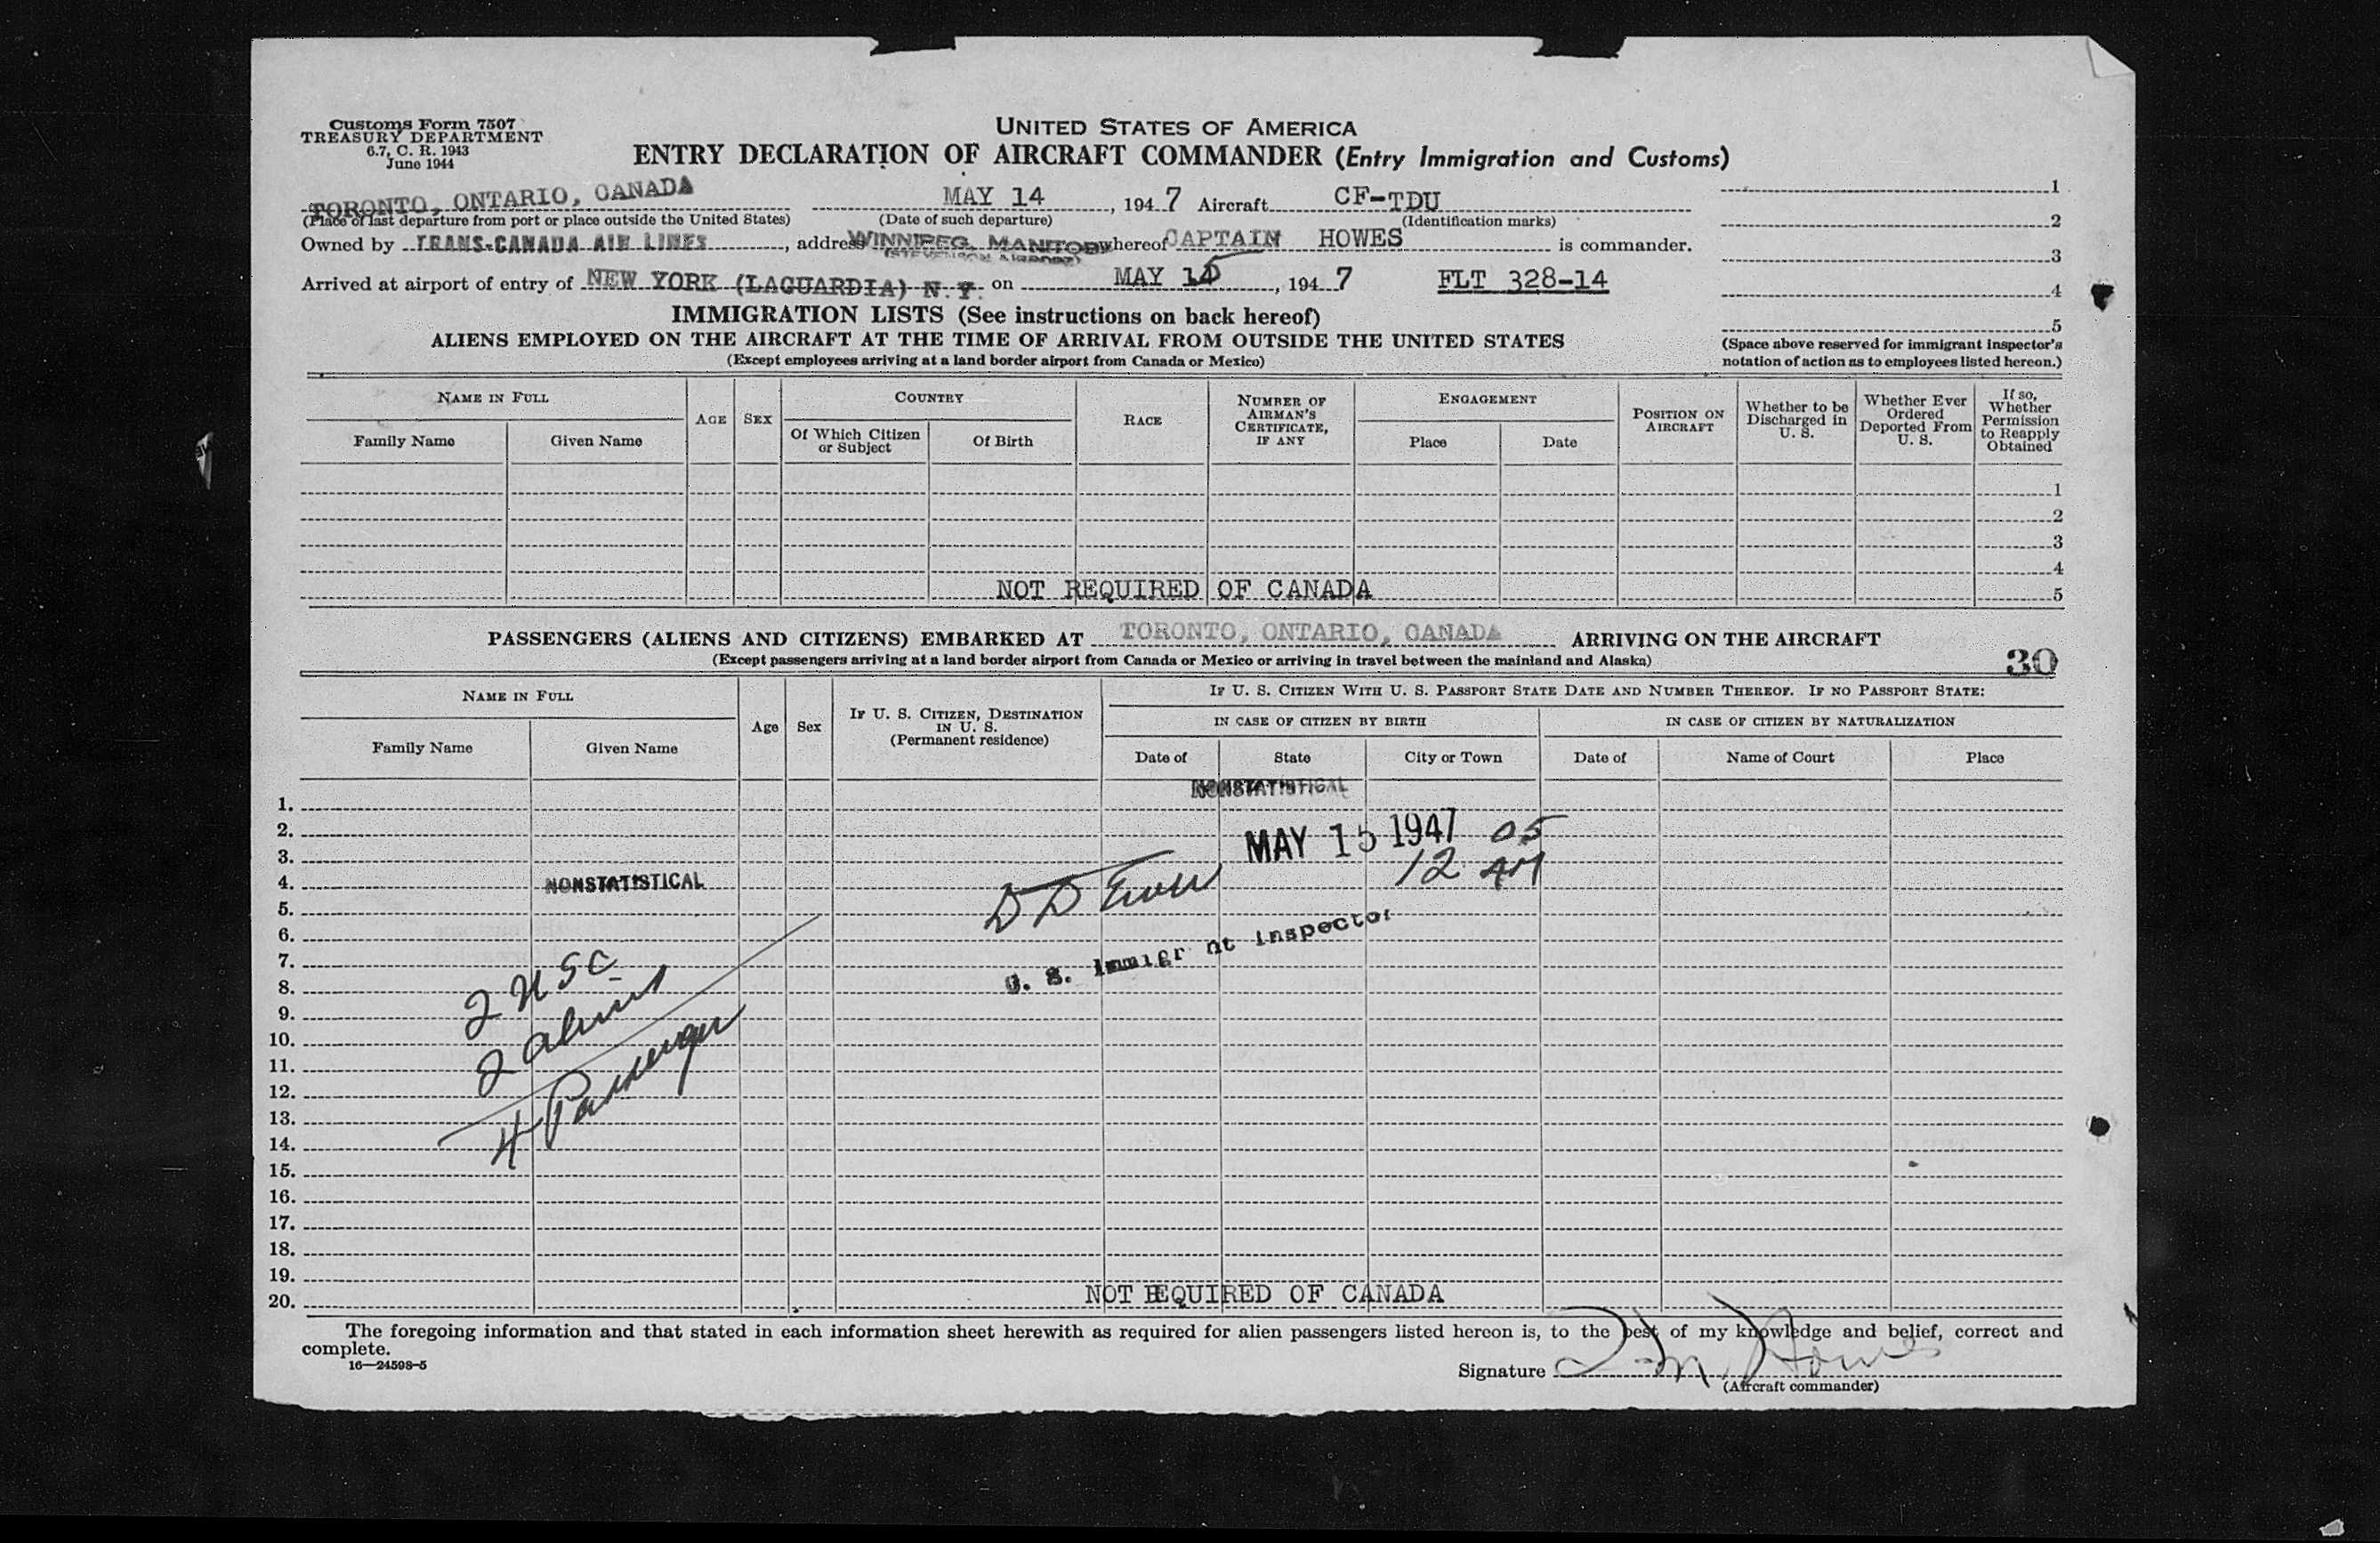 Customs Form 7507
TREASURY DEPARTMENT
6.7, C. R. 1943
June 1944
UNITED STATES OF AMERICA
ENTRY DECLARATION OF AIRCRAFT COMMANDER (Entry Immigration and Customs)
TORONTO, ONTARIO, CANADA MAY 14, 1947 Aircraft CF-TDU
(Place of last departure from port or place outside the United States) (Date of such departure) (Identification marks)
Owned by TRANS-CANADA AIR LINES, address WINNIPEG, MANITOBA whereof CAPTAIN HOWES is commander.
(STEVENSON AIRPORT)
Arrived at airport of entry of NEW YORK (LAGUARDIA) N. Y. on MAY 15, 1947 FLT 328-14
1
2
3
4
5
(Space above reserved for immigrant inspector's
notation of action as to employees listed hereon.)
IMMIGRATION LISTS (See instructions on back hereof)
ALIENS EMPLOYED ON THE AIRCRAFT AT THE TIME OF ARRIVAL FROM OUTSIDE THE UNITED STATES
(Except employees arriving at a land border airport from Canada or Mexico)
NAME IN FULL
Family Name
Given Name
AGE
SEX
COUNTRY
Of Which Citizen or Subject
Of Birth
RACE
NUMBER OF AIRMAN'S CERTIFICATE, IF ANY
ENGAGEMENT
Place
Date
POSITION ON AIRCRAFT
Whether to be Discharged in U. S.
Whether Ever Ordered Deported From U. S.
If so, Whether Permission to Reapply Obtained
1
2
3
4
NOT REQUIRED OF CANADA 5
PASSENGERS (ALIENS AND CITIZENS) EMBARKED AT TORONTO, ONTARIO, CANADA ARRIVING ON THE AIRCRAFT
(Except passengers arriving at a land border airport from Canada or Mexico or arriving in travel between the mainland and Alaska)
30
NAME IN FULL
Family Name
Given Name
Age
Sex
IF U. S. CITIZEN, DESTINATION IN U. S.
(Permanent residence)
IF U. S. CITIZEN WITH U. S. PASSPORT STATE DATE AND NUMBER THEREOF. IF NO PASSPORT STATE:
IN CASE OF CITIZEN BY BIRTH
IN CASE OF CITIZEN BY NATURALIZATION
Date of
State
City or Town
Date of
Name of Court
Place
NONSTATISTICAL
1.
2. MAY 15 1947 05
3. 12 AM
4. NONSTATISTICAL
5. D D
6.
7. U. S. Immigr nt Inspector
8. 2 USC
9.
10. 2 aliens
11.
12.
13. 4 Passenger
14.
15.
16.
17.
18.
19.
20. NOT REQUIRED OF CANADA
The foregoing information and that stated in each information sheet herewith as required for alien passengers listed hereon is, to the best of my knowledge and belief, correct and
complete.
16—24598-5
Signature Howes
(Aircraft commander)